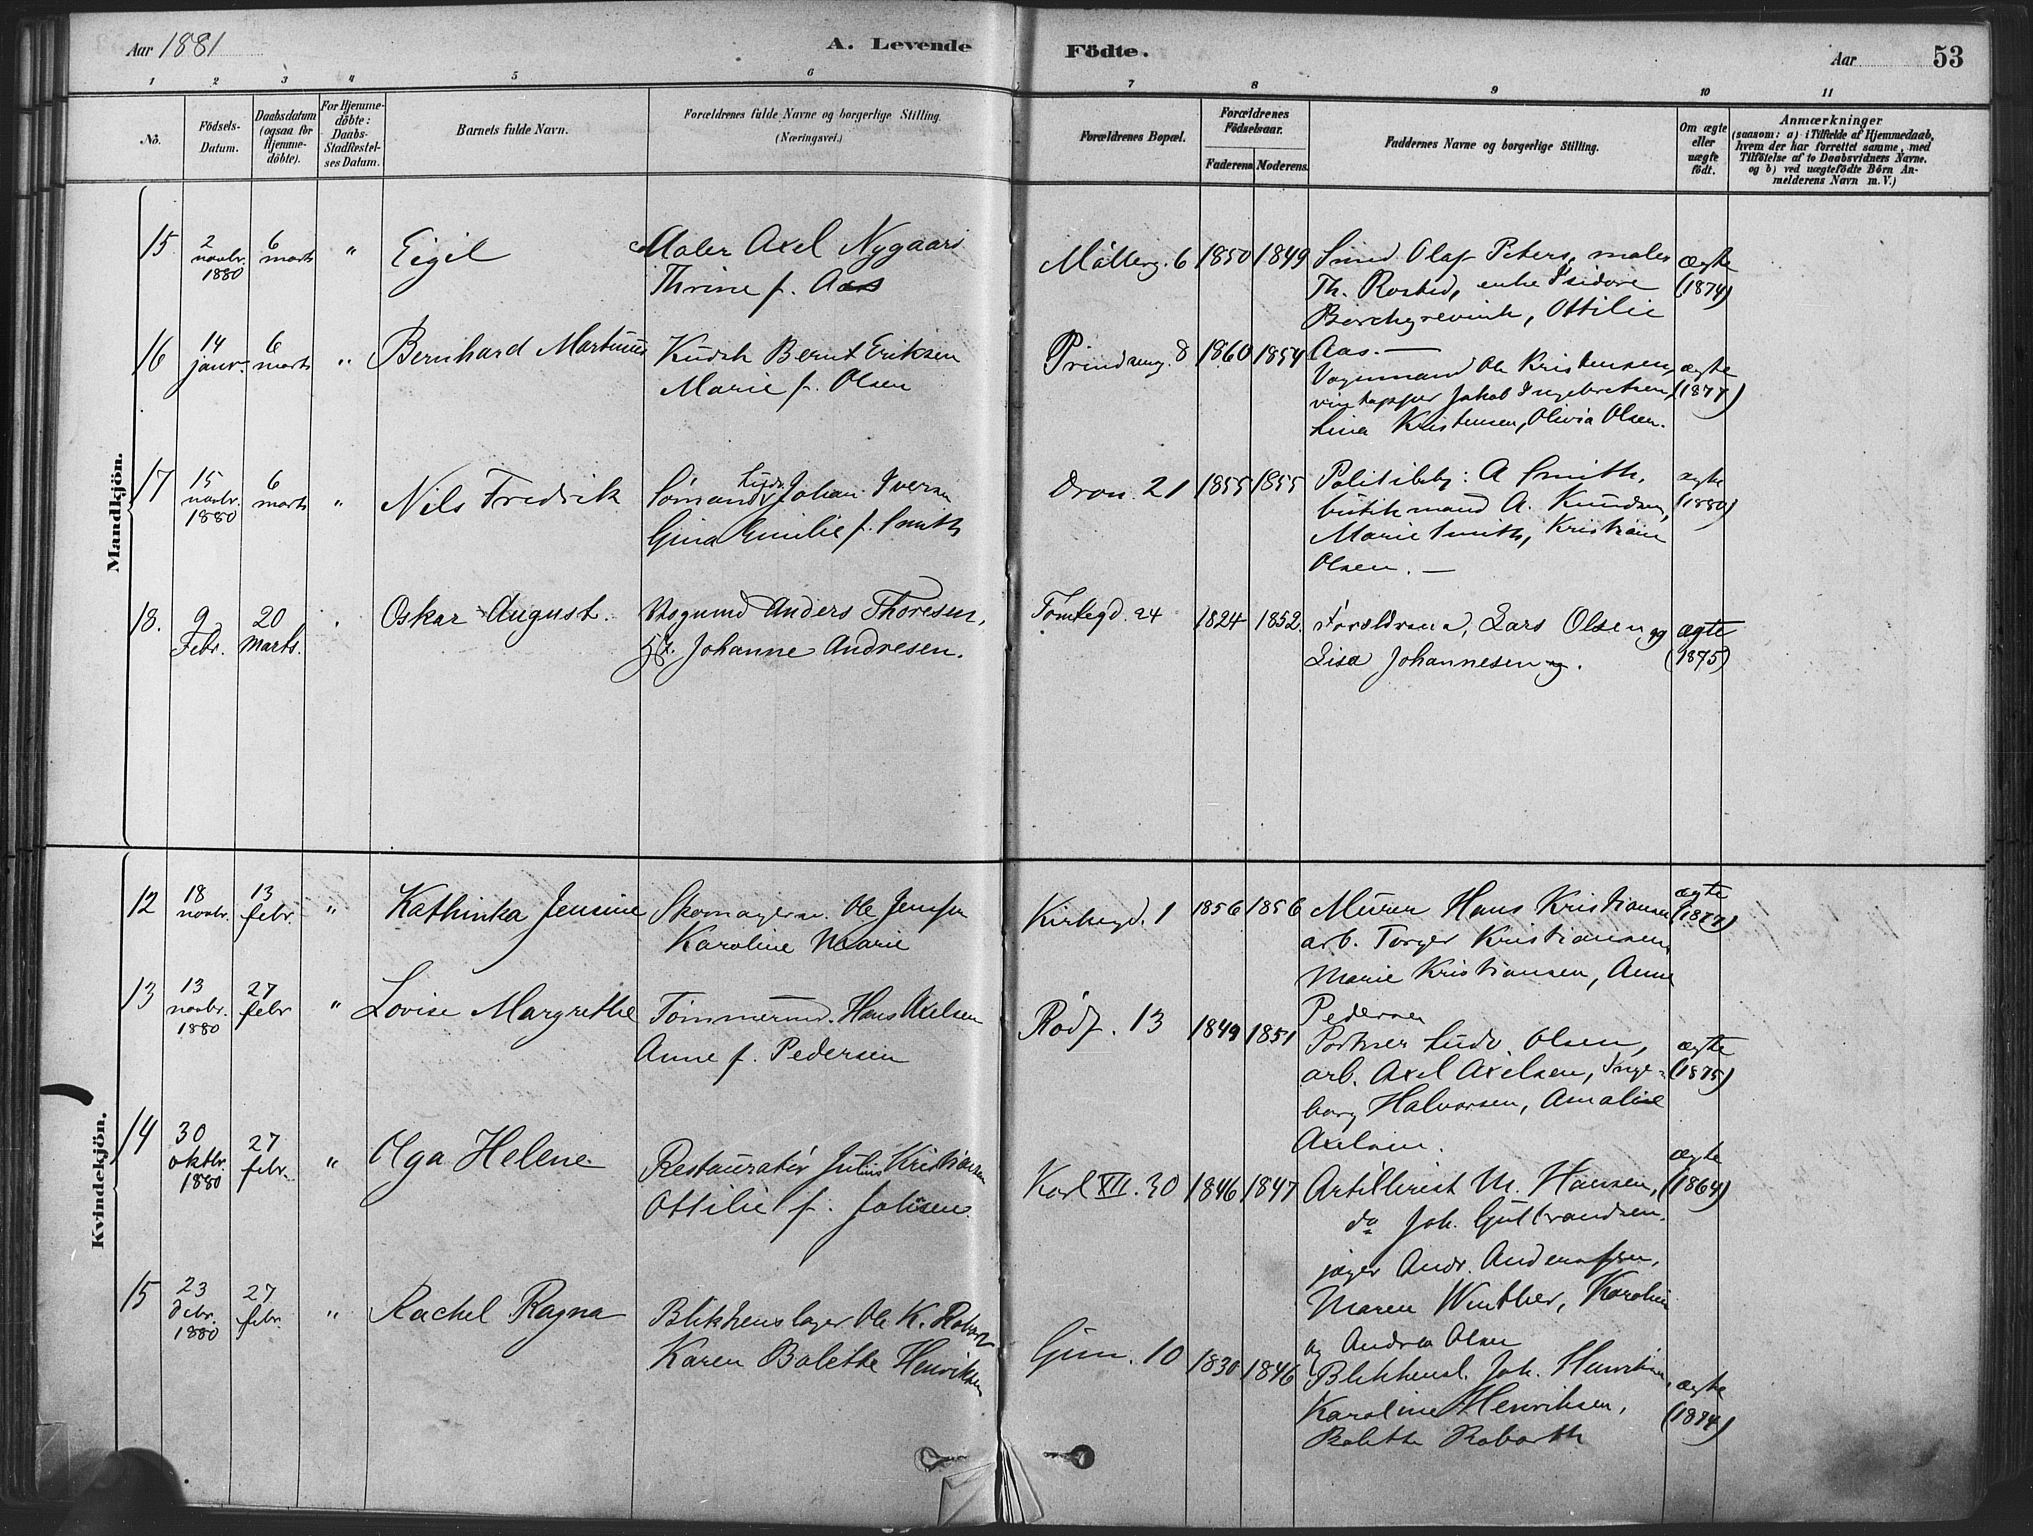 Aar 1881
A. Levende Födte.
Aar
53
1 2 3 4 5 6 7 8 9 10 11
No.
Födsels-
Datum.
Daabsdatum
(ogsaa for
Hjemme-
döbte).
For Hjemme-
döbte:
Daabs-
Stadfæstel-
ses Datum.
Barnets fulde Navn.
Forældrenes fulde Navne og borgerlige Stilling.
(Næringsvei.)
Forældrenes Bopæl.
Forældrenes
Födselsaar.
Faderens Moderens.
Faddernes Navne og borgerlige Stilling.
Om ægte
eller
uægte
födt.
Anmærkninger
(saasom: a) i Tilfælde af Hjemmedaab,
hvem der har forrettet samme, med
Tilföielse af to Daabsvidners Navne.
og b) ved uægtefödte Börn An-
melderens Navn m. V.)
Mandkjön.
15
2
novbr.
1880
6
marts
"
Eigil
Maler Axel Nygaard
Thrine f. Aas
6
1850
1849
Olaf Peters, maler
Th. Rosted, enke Isidore
Borchgrevink, Ottilie
Aas. —
ægte
(1874)
16
14
janr.
6
marts
"
Bernhard Martinius
Kudsk Bernt Eriksen
Marie f. Olsen
8
1860
1854
Vognmand Ole Kristensen,
vintapper Jakob Ingebretsen,
Lina Kristensen, Olivia Olsen.
ægte
(1877)
17
15
novbr.
1880
6
marts
"
Nils Fredrik
Sømand Johan Iversen
Gina Emilie f. Smith
Dron. 21
1855
1855
A Smith,
butikmand A. Knudsen,
Marie Smith, Kristian
Olsen. —
ægte
(1880)
18.
9
Febr.
20
Marts.
"
Oskar August.
Anders Thoresen,
Johanne Andresen.
Tomtegd. 24
1824
1852.
Forældrene, Lars Olsen og
Lisa Johannesen
ægte
(1875)
Kvindekjön.
12
18
novbr.
13
febr.
"
Kathinka Jensine
Skomagersv. Ole Jensen
Karoline Marie
Kirkegd. 1
1856
1856
Murer Hans Kristiansen
arb. Torger Kristiansen,
Marie Kristiansen, Anne
Pedersen
ægte
(1877)
13
13
novbr.
1880
27
febr
"
Lovise Margrethe
Tømmermd. Hans Axelsen
Anne f. Pedersen
Rødf. 13
1849
1851
Portner Ludv. Olsen,
arb. Axel Axelsen, Inge-
borg Halvorsen, Amalie
Axelsen.
ægte
(1875)
14
30
oktbr.
1880
27
febr.
"
Olga Helene
Restauratør Julius Kristiansen
Ottilie f. Johnsen.
Karl XII. 30
1846
1847
Artillerist M. Hansen,
do Joh. Guttormsen.
jæger Andr. Andersen,
Maren Winther, Karoline
og Andrea Olsen
ægte
(1864)
15
23
debr.
1880
27
febr.
"
Rachel Ragna
Blikkenslager Ole K.
Karen Bolette Henriksen
10
1830
1846
Blikkensl. Joh. Henriksen,
Karoline Henriksen,
Bolette Robarth
ægte
(1874)